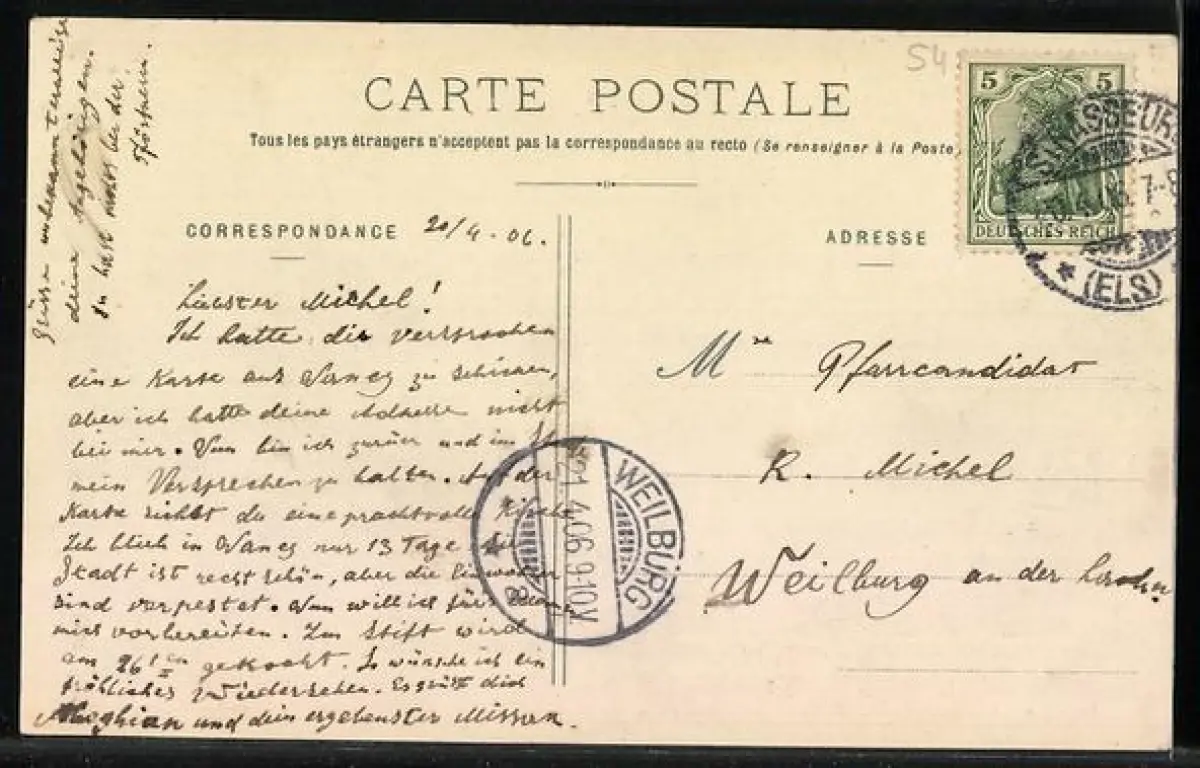 54
CARTE POSTALE
Tous les pays étrangers n'acceptent pas la correspondance au recto (Se renseigner à la Poste)
CORRESPONDANCE
20/4-06.
Liebster Michel!
Ich hatte dir versprochen
eine Karte aus Nancy zu schicken,
aber ich hatte deine Adresse nicht
bei mir. Nun bin ich zurück und im
mein Versprechen zu halten. Auf der
Karte siehst du eine prachtvolle Kirche
Ich blieb in Nancy nur 13 Tage. Die
Stadt ist recht schön, aber die Einwohner
sind verpestet. Nun will ich fürs
mich vorbereiten. Im Stift wird
am 26ten gekocht. So wünsche ich ein
fröhliches Wiedersehen. Es grüßt dich
und dein ergebenster
Grüsse unbekannterweise
deine Angehörigen.
du hast
ADRESSE
Mr Pfarrcandidat
R. Michel
Weilburg an der Lahn
5 5
DEUTSCHES REICH
STRASSBURG
7-8
* (ELS)
WEILBURG
21.4.06.9-10V.